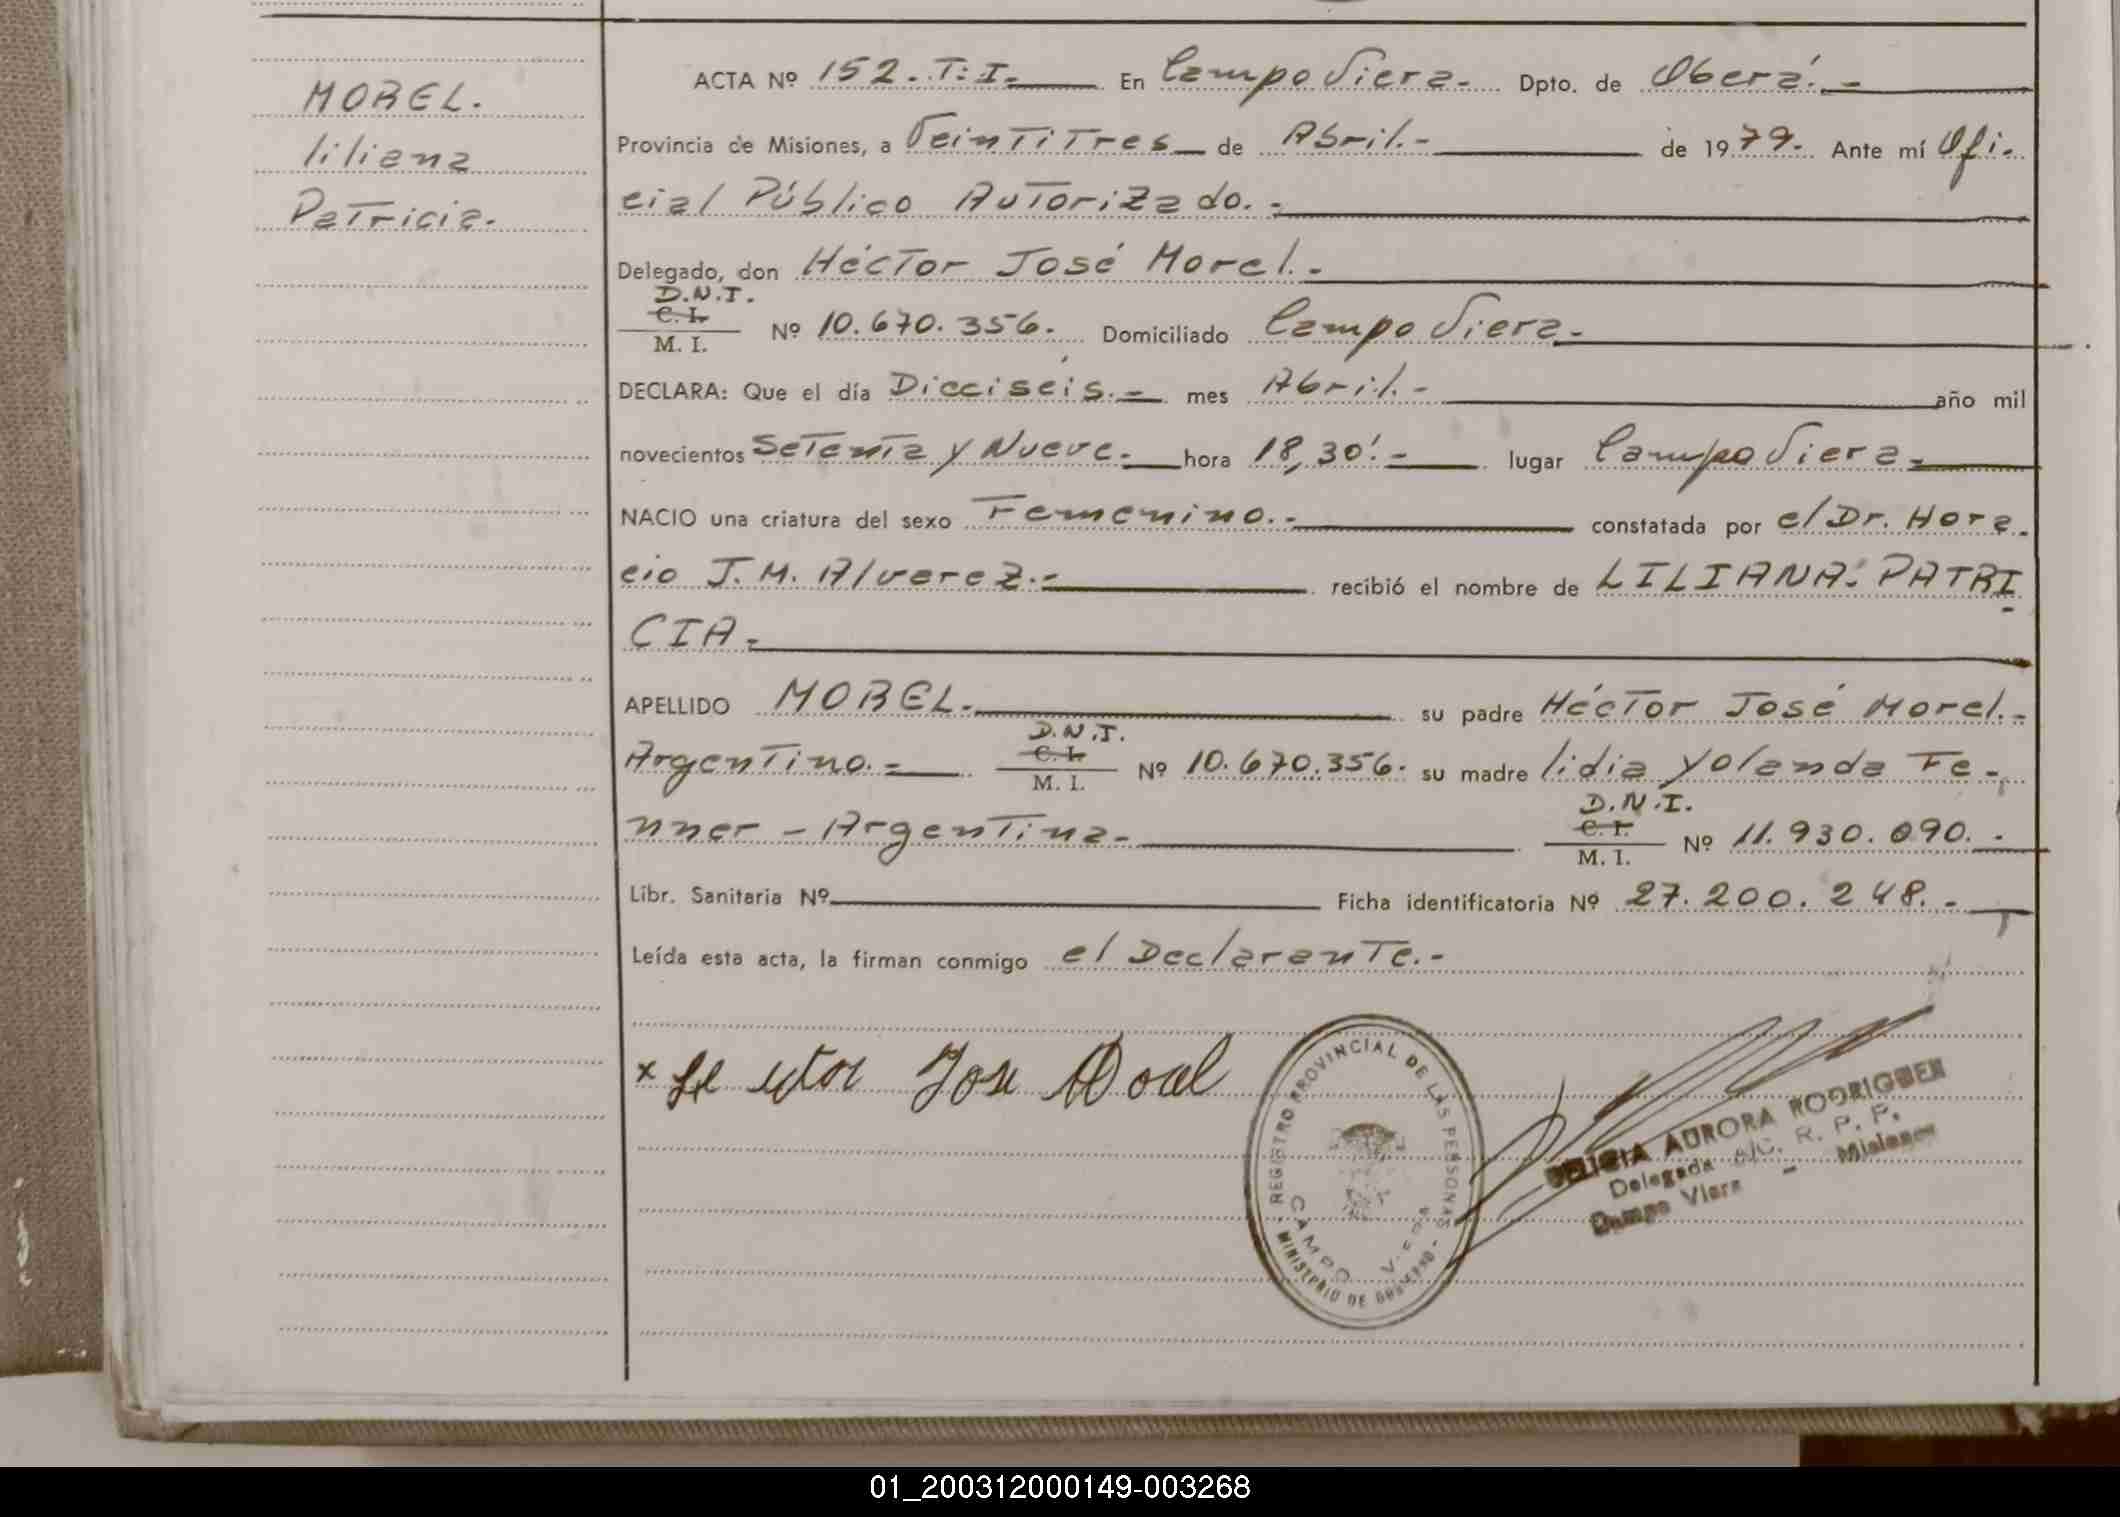 MOREL.
liliana
Patricia.
ACTA Nº 152. T: I. En Campo Viera. Dpto. de Oberá.-
Provincia de Misiones, a Veintitres de Abril.- de 1979. Ante mí Ofi-
cial Público Autorizado.-
Delegado, don Héctor José Morel.-
D.N.I.
C. I.
M. I. Nº 10.670.356. Domiciliado Campo Viera.-
DECLARA: Que el día Dieciseis.- mes Abril.- año mil
novecientos Setenta y Nueve.- hora 18,30'.- lugar Campo Viera.-
NACIO una criatura del sexo Femenino.- constatada por el Dr. Hora-
cio J. M. Alverez.- recibió el nombre de LILIANA PATRI
CIA.-
APELLIDO MOREL.- su padre Héctor José Morel.-
D.N.I.
C. I.
Argentino.- M. I. Nº 10.670.356. su madre lidia Yolanda Fe-
D.N.I.
C. I.
nner - Argentina- M. I. Nº 11.930.090.-
Libr. Sanitaria Nº Ficha identificatoria Nº 27.200.248.-
Leída esta acta, la firman conmigo el Declarante.-
x Jose
REGISTRO PROVINCIAL DE LAS PERSONAS
CAMPO VIERA
MINISTERIO DE GOBIERNO
AURORA RODRIGUEZ
Delegada A/C. R. P. P.
Campo Viera - Misiones
01_200312000149-003268